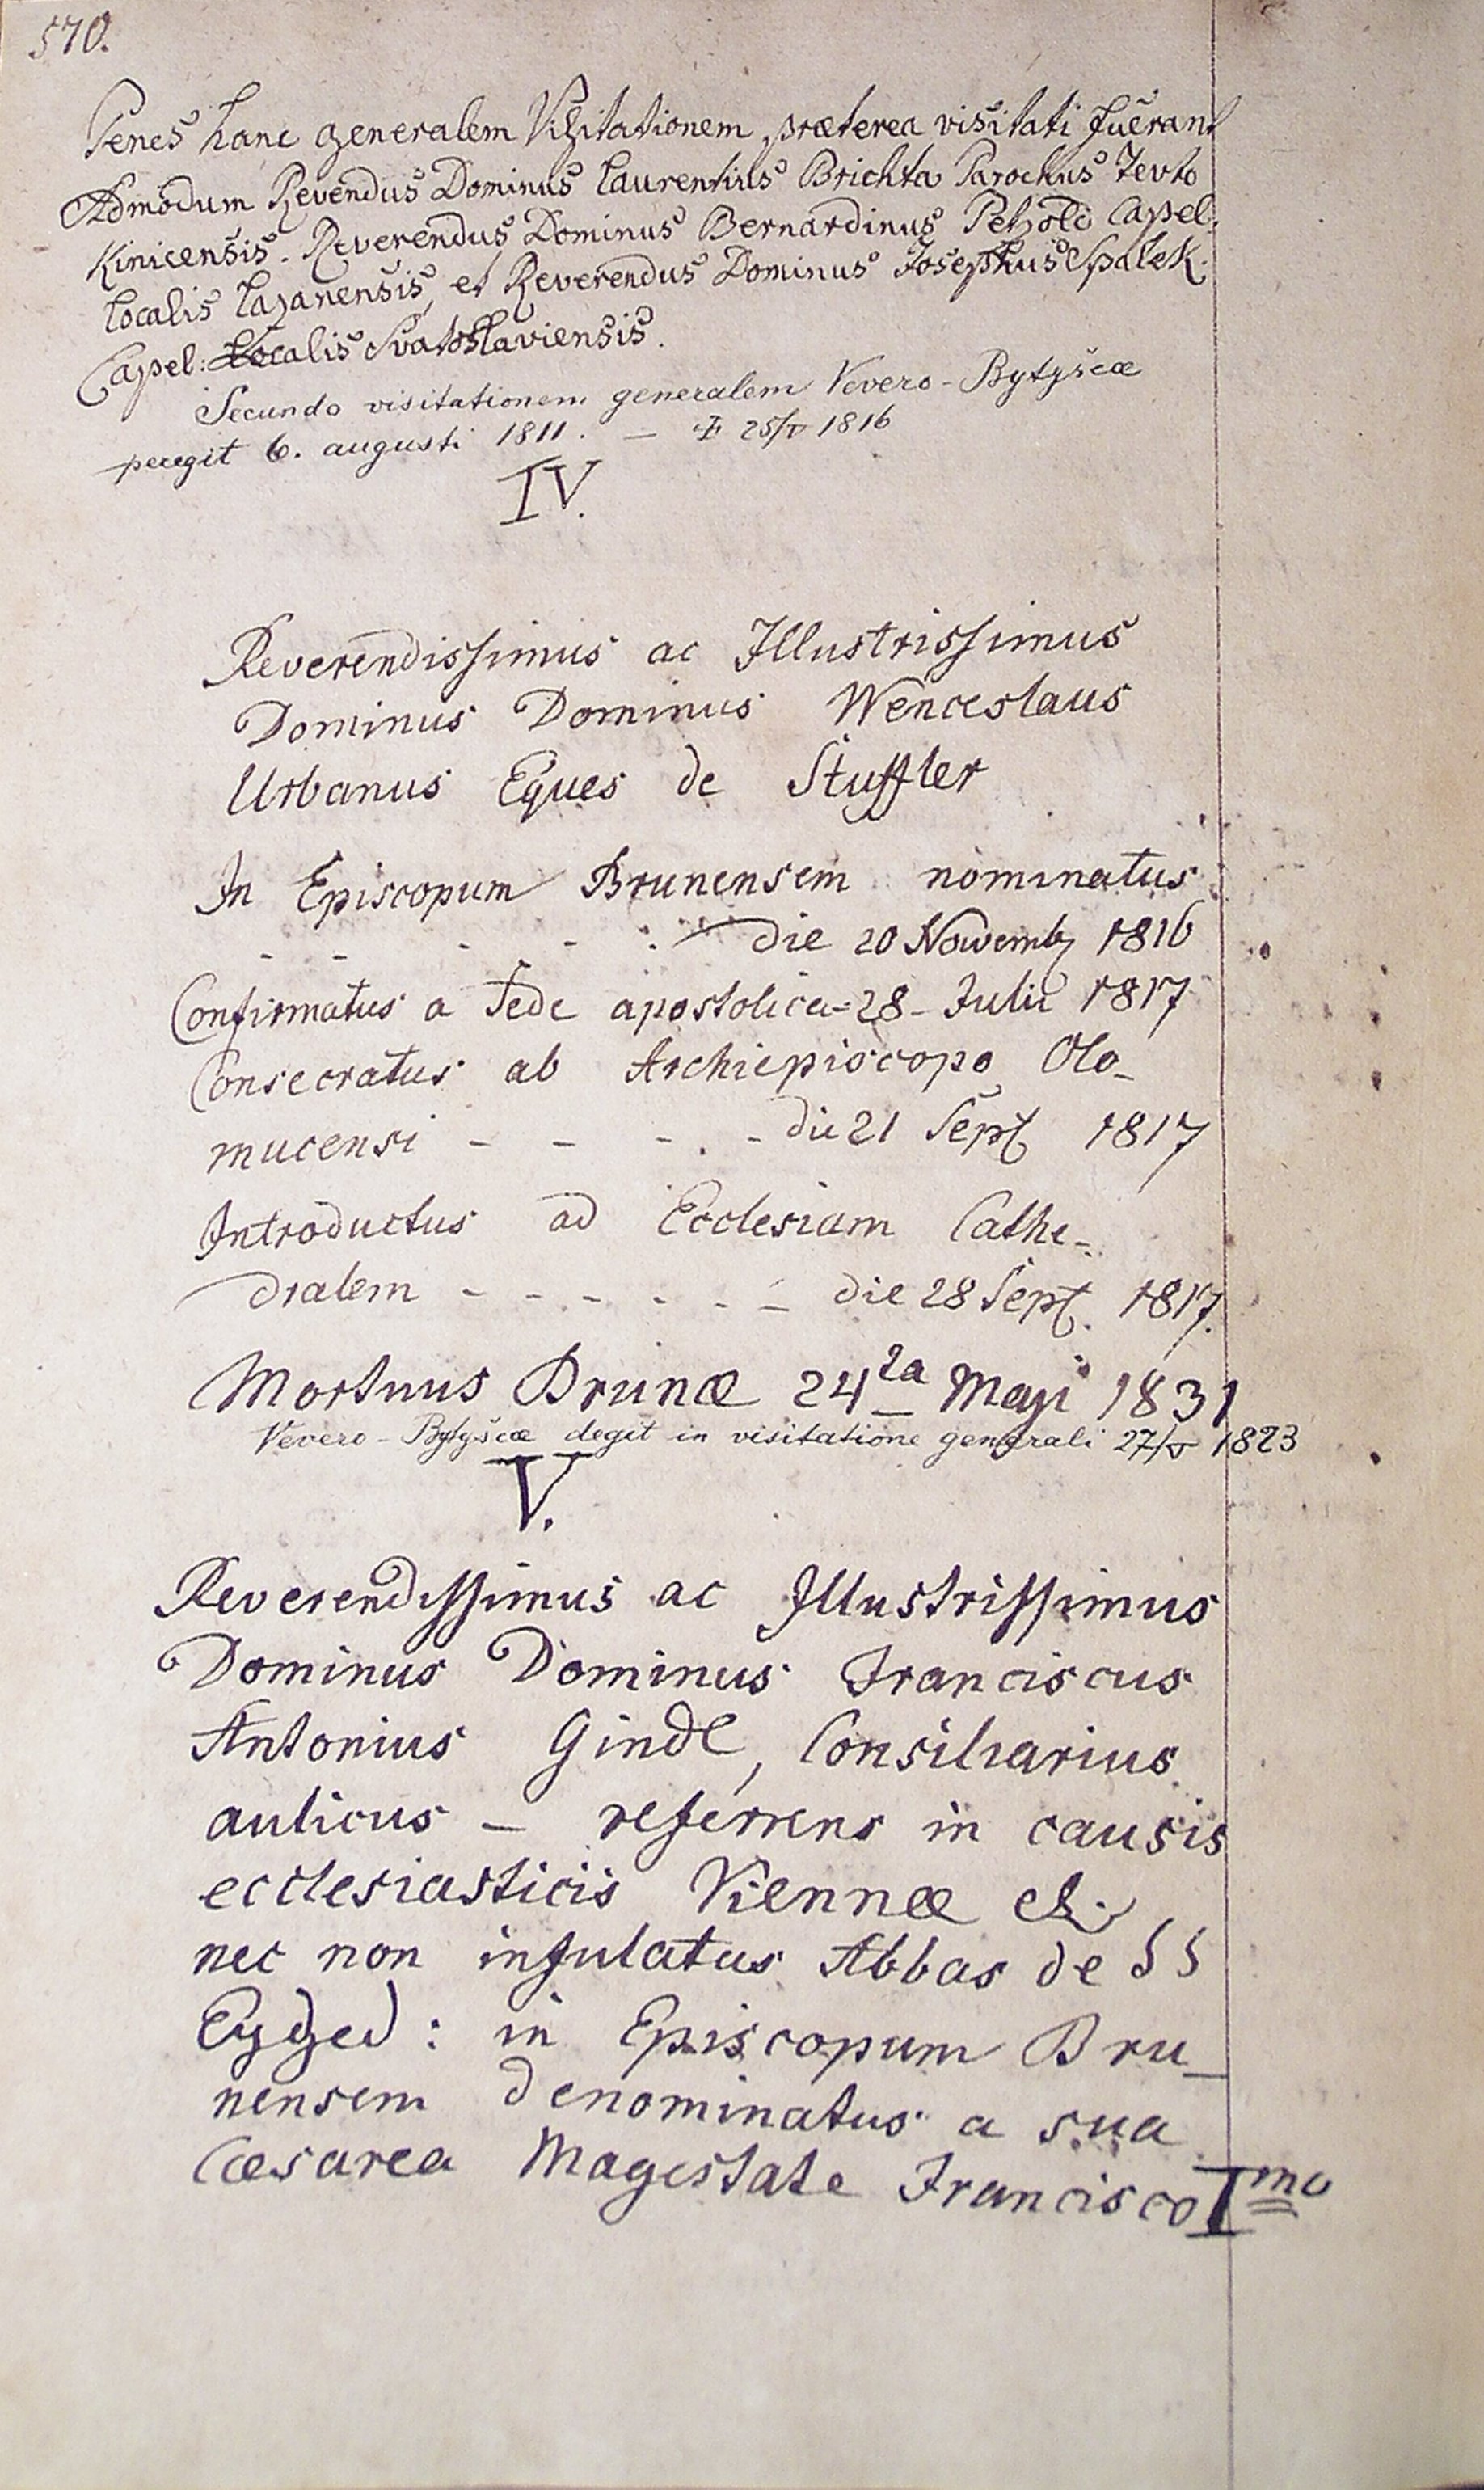 570.
Penes hanc generalem Visitationem præterea visitati fuerant
Admodum Revendus Dominus Laurentius Brichta Parochus Tevto
Kinicensis. Reverendus Dominus Bernardinus Petzold Capel.
Localis Lazanensis, et Reverendus Dominus Josephus Spatek.
Capel: Localis Svatoslaviensis.
Secundo visitationem generalem Vevero-Bytyšcæ
peregit 6. augusti 1811. — ‡ 25/V 1816
IV.
Reverendissimus ac Illustrissimus
Dominus Dominus Wenceslaus
Urbanus Eques de Stuffler
In Episcopum Brunensem nominatus
- - - - : die 20 Novemb 1816
Confirmatus a Sede apostolica - 28 - Julii 1817
Consecratus ab Archiepiscopo Olo-
mucensi - - - . - die 21 Sept 1817
Introductus ad Ecclesiam Cathe-
dralem - - - - - - - die 28 Sept. 1817.
Mortuus Brunæ 24ta Maji 1831
Vevero-Bytyšcæ degit in visitatione generali 27/V 1823
V.
Reverendissimus ac Illustrissimus
Dominus Dominus Franciscus
Antonius Gindl, Consiliarius
aulicus — referrens in causis
ecclesiasticis Viennæ &.
nec non infulatus Abbas de SS
Egyed: in Episcopum Bru-
nensem denominatus a sua
Cæsarea Magestate Francisco Imo